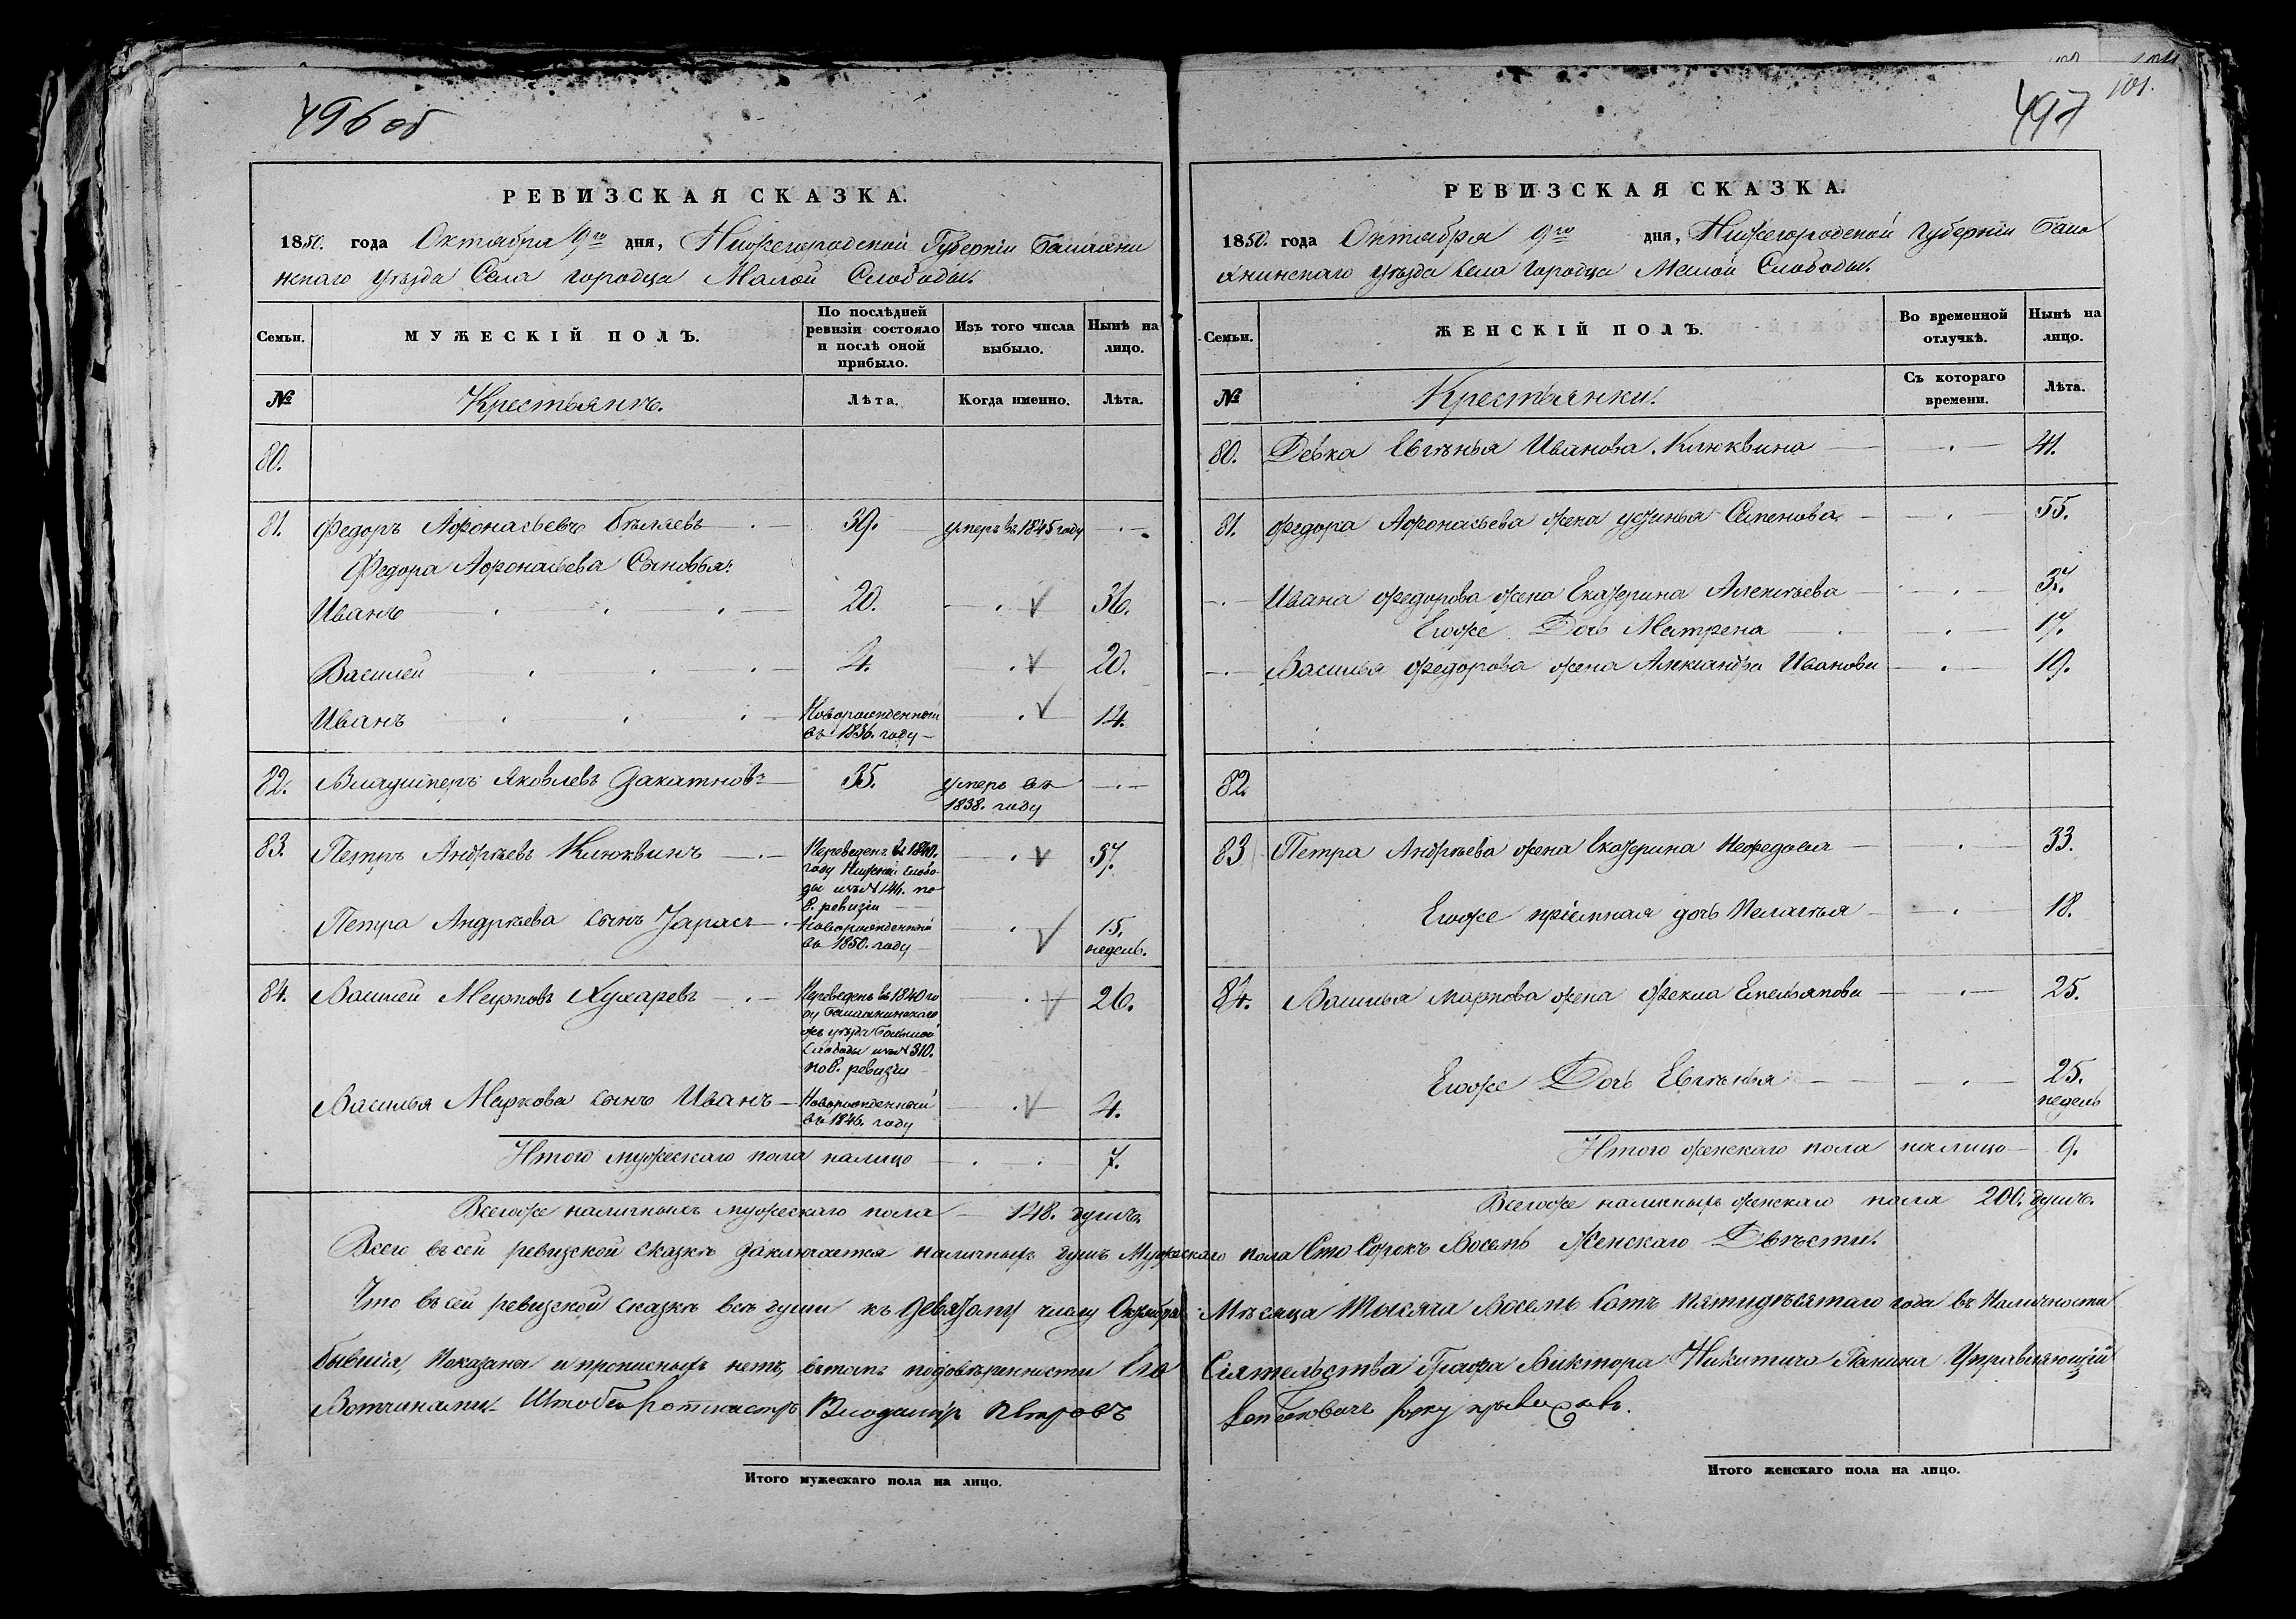 496 об
РЕВИЗСКАЯ СКАЗКА.
1850. года Октября 9го дня, Нижегородской Губернiи Балахни
нскаго уѣзда Села городца Малой Слободы.
Семьи.
МУЖЕСКІЙ ПОЛЪ.
По послѣдней ревизіи состояло и послѣ оной прибыло.
Изъ того числа выбыло.
Нынѣ на лицо.
№
Крестьянъ.
Лѣта.
Когда именно.
Лѣта.
80.
81. Федоръ Афонасьевъ Бѣляевъ 39. умеръ въ 1845 году
Федора Афонасьева Сыновья:
Иванъ 20. 36.
Василей 4. 20.
Иванъ Новорожденный въ 1836. году 14.
82. Владимеръ Яковлевъ Закатновъ 35. умеръ въ 1838. году
83. Петръ Андрѣевъ Клюквинъ Переведенъ въ 1840. году Нижней Слободы изъ № 146. по 8. ревизiи 37.
Петра Андрѣева сынъ Тарасъ Новорожденный въ 1850. году 15. недель.
84. Василей Марковъ Кухаревъ Переведенъ въ 1840 году Балахнинскаго жъ уѣзда Большой Слободы изъ № 310. по 8. ревизiи 26.
Василья Маркова сынъ Иванъ Новорожденный въ 1846. году 4.
Итого мужескаго пола налицо 7.
Всегоже наличныхъ мужескаго пола 148. душъ.
497
101.
РЕВИЗСКАЯ СКАЗКА.
1850. года Октября 9го дня, Нижегородской губернiи Бала
хнинскаго уѣзда Села Городца Малой Слободы.
Семьи.
ЖЕНСКІЙ ПОЛЪ.
Во временной отлучкѣ.
Нынѣ на лицо.
№
Крестьянки.
Съ котораго времени.
Лѣта.
80. Девка Евгенья Иванова Клюквина 41.
81. Федора Афонасьева жена устинья Семенова 55.
Ивана Федорова жена Екатерина Алексѣева 37.
Егоже Дочь Матрена 17.
Василья Федорова жена Александра Иванова 19.
82.
83 Петра Андрѣева жена Екатерина Нефедова 33.
Егоже прiемная дочь Пелагѣя 18.
84. Василья маркова жена Фекла Емельянова 25.
Егоже Дочь Евгенья 25. недель
Итого женскаго пола налицо 9.
Всегоже наличныхъ женскаго пола 200. душъ.
Всего въ сей ревизской сказкѣ заключается наличныхъ душъ Мужескаго пола Сто Сорокъ Восемь Женскаго Двѣсти.
Что въ сей ревизской сказкѣ всѣ души къ девятому числу Октября Мѣсяца Тысяча Восемь Сотъ пятидѣсятаго года въ Наличности
бывшiя, Показаны и прописныхъ нетъ, въ томъ по довѣренности Его Сiятельства Графа Виктора Никитича Панина Управляющiй
Вотчинами Штабсъ Ротмистръ Владимiръ Петровъ руку приложилъ.
Итого мужескаго пола на лицо.
Итого женскаго пола на лицо.